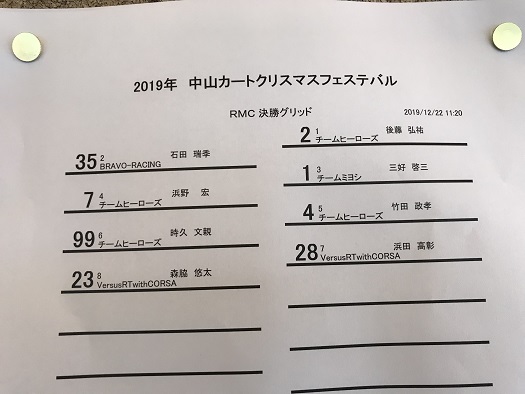 2019年 中山カートクリスマスフェステバル
RMC 決勝グリッド 2019/12/22 11:20
2 1 後藤 弘祐
チームヒーローズ
35 2 石田 瑞季
BRAVO-RACING
1 3 三好 啓三
チームミヨシ
7 4 浜野 宏
チームヒーローズ
4 5 竹田 政孝
チームヒーローズ
99 6 時久 文親
チームヒーローズ
28 7 浜田 高彰
VersusRTwithCORSA
23 8 森脇 悠太
VersusRTwithCORSA